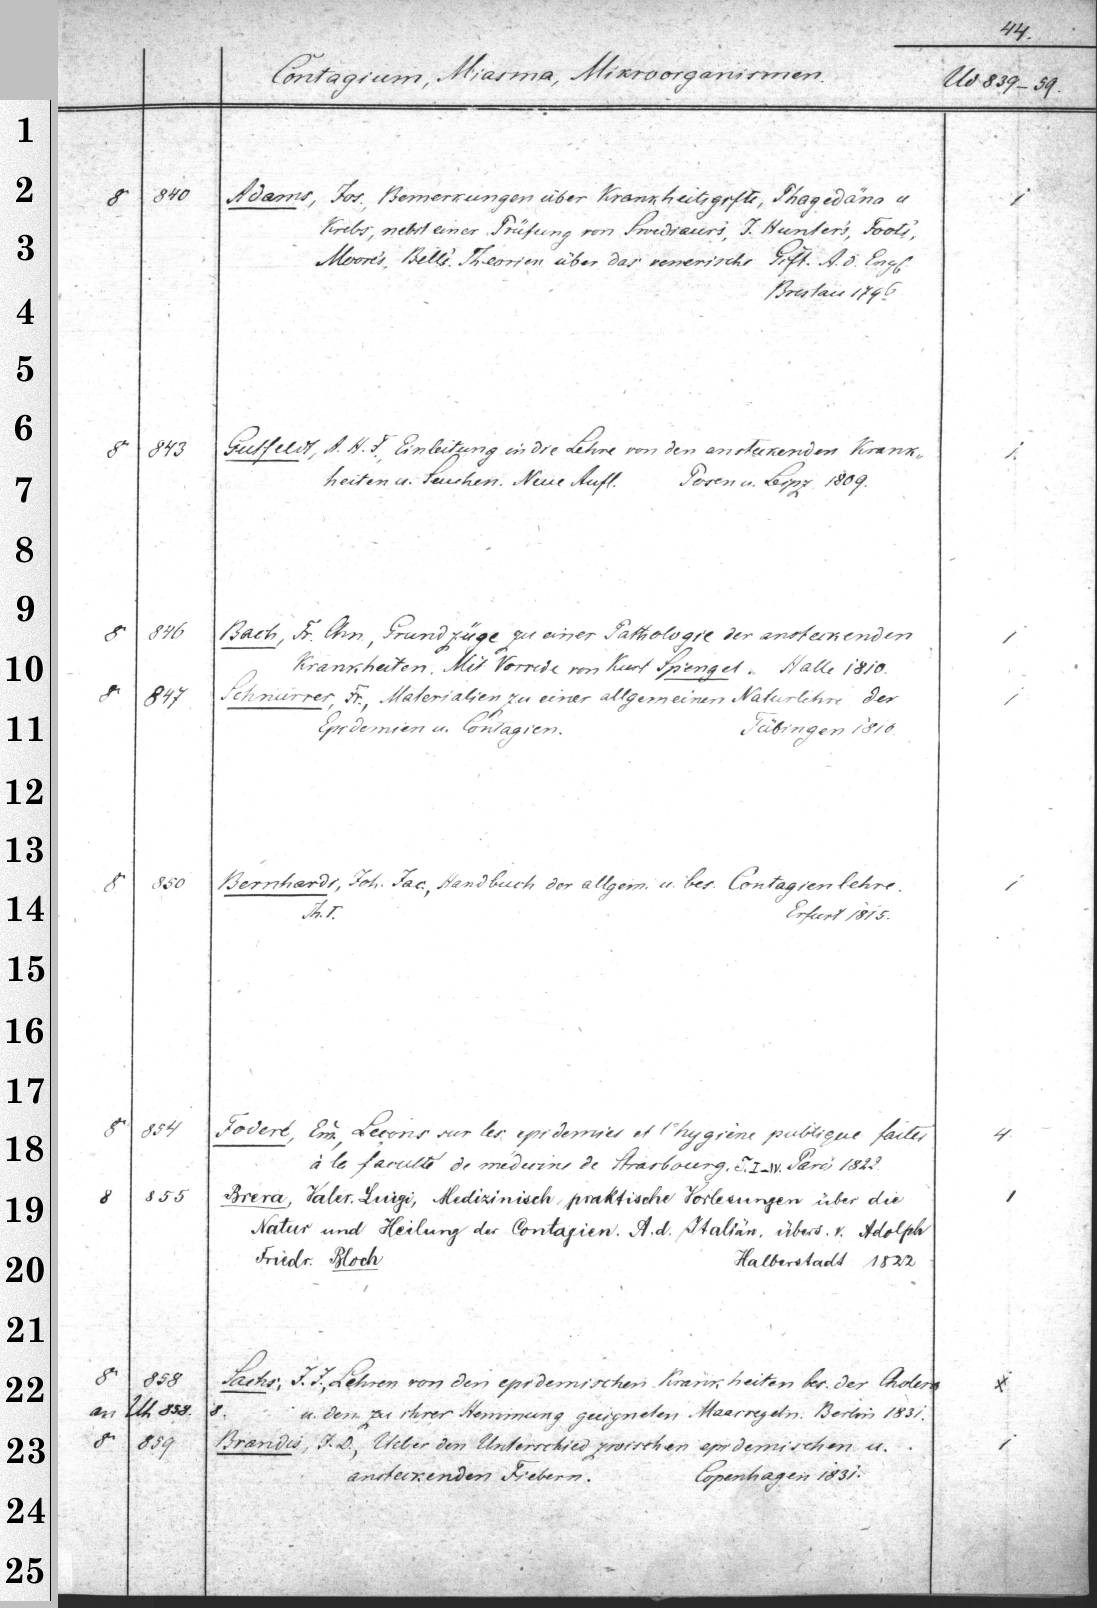 44.
Contagium, Miasma, Mikroorganismen.
Ud 839-59.
1
2
8° 840 Adams, Jos., Bemerkungen über Krankheitsgifte, Phagedäna u 1
Krebs, nebst einer Prüfung von Swediaur's, J. Hunter's, Foot's,
3
Moore's, Bell's Theorien über das venerische Gift. A. d. Engl.
Breslau 1796
4
5
6
8° 843 Gutfeldt, A. H. F., Einleitung in die Lehre von den ansteckenden Krank- 1.
heiten u. Seuchen. Neue Aufl. Posen u. Leipz. 1809.
7
8
9
8° 846 Bach, Fr. Chn., Grundzüge zu einer Pathologie der ansteckenden 1
Krankheiten. Mit Vorrede von Kurt Sprengel. Halle 1810.
10
8° 847 Schnurrer, Fr., Materialien zu einer allgemeinen Naturlehre der 1
Epidemien u. Contagien. Tübingen 1810.
11
12
13
8° 850 Bernhardi, Joh. Jac., Handbuch der allgem. u. bes. Contagienlehre. 1
Th. I. Erfurt 1815.
14
15
16
17
8° 854 Foderé, Em., Leçons sur les epidemies et l'hygiène publique faites 4
18
à la faculté de médecine de Strasbourg. T. I-IV. Paris 1822.
8 855 Brera, Valer. Luigi, Medizinisch praktische Vorlesungen über die 1
19
Natur und Heilung der Contagien. A. d. Italiän. übers. v. Adolph
Friedr. Bloch Halberstadt 1822
20
21
8° 858 Sachs, J. J., Lehren von den epidemischen Krankheiten bes. der Cholera
22
an Uh 858. 8. u. den zu ihrer Hemmung geeigneten Maasregeln. Berlin 1831.
8° 859 Brandis, J. D., Ueber den Unterschied zwischen epidemischen u. 1
23
ansteckenden Fiebern. Copenhagen 1831.
24
25